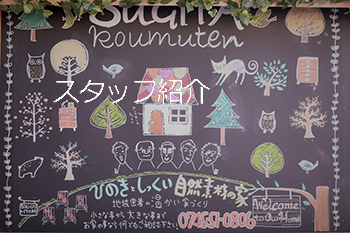 SUGITA
Koumuten
スタッフ紹介
ひのきとしっくい 自然素材の家
地域密着の 家づくり
小さな事から大きな事まで
お家の事なら何でもご相談下さい
Welcome
to Our Home